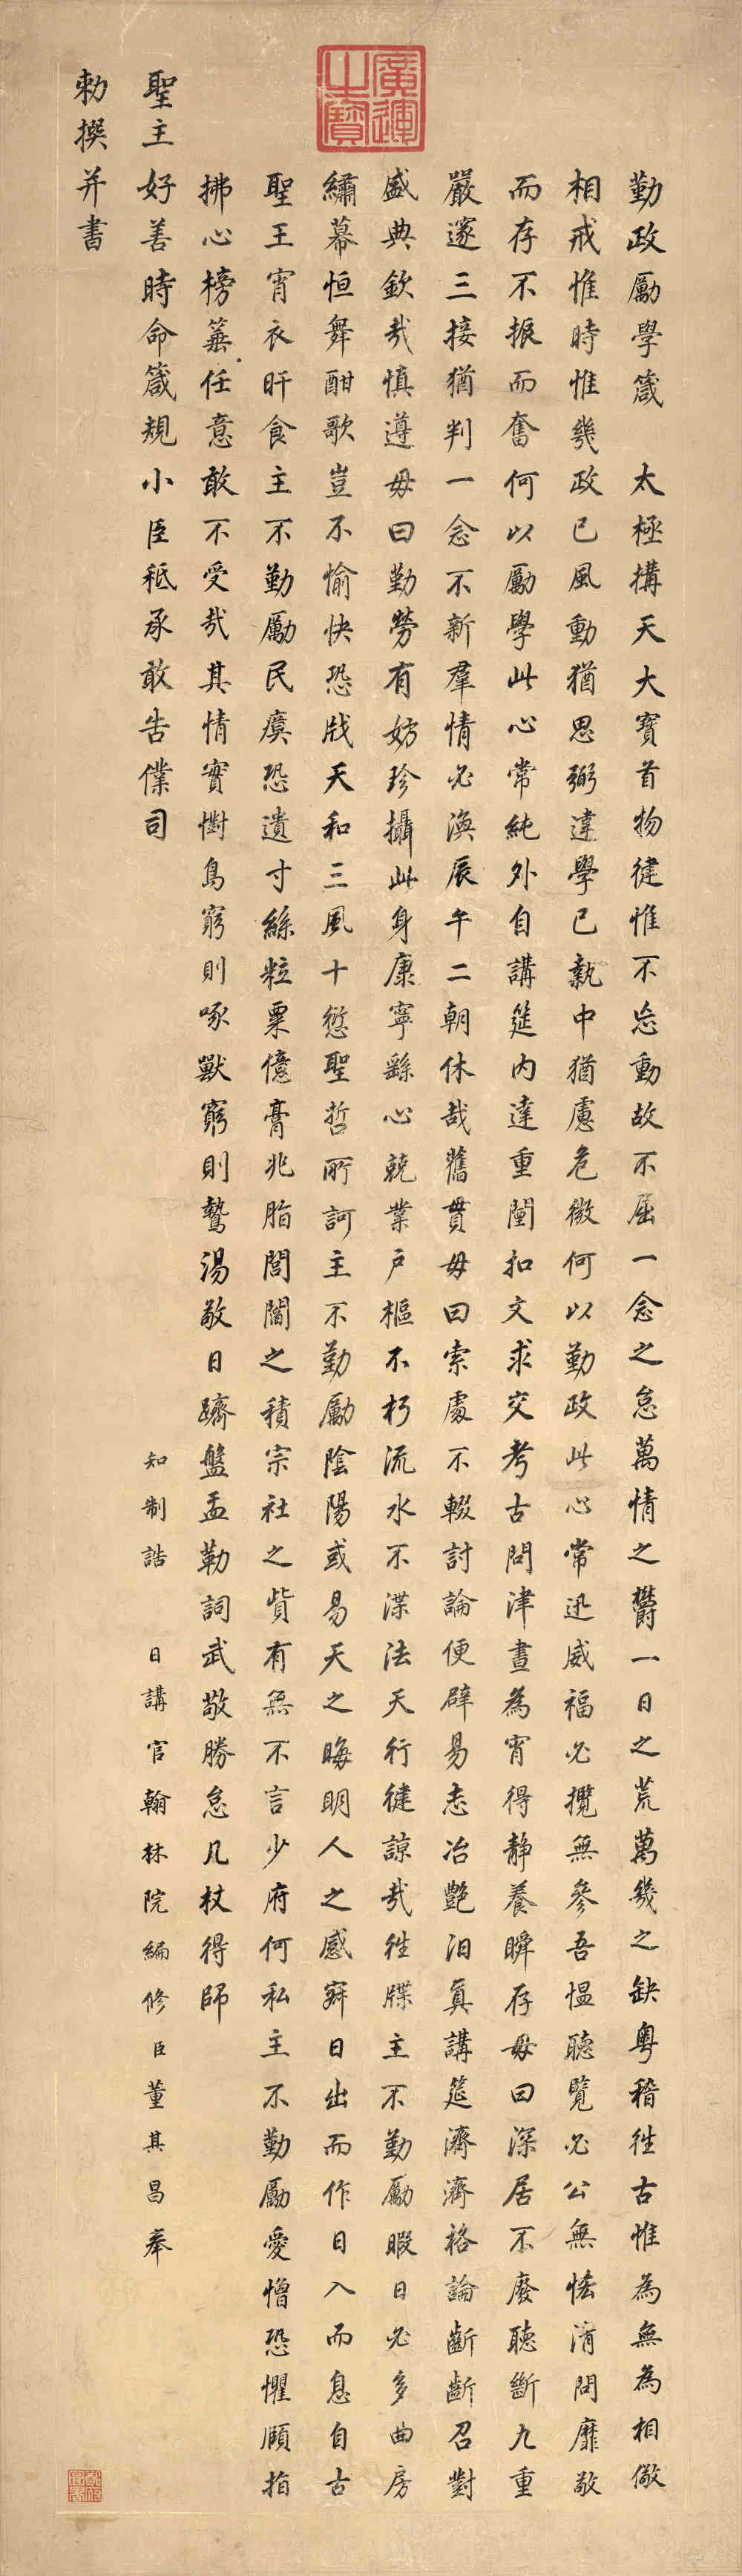 廣運之寶
勤政勵學箴 太極構天大寶首物健惟不息動故不屈一念之怠萬情之欝一日之荒萬幾之缺粵稽徃古惟為無為相儆
相戒惟時惟幾政已風動猶思弼違學已執中猶慮危微何以勤政此心常迅威福必攬無參吾愠聽覽必公無恡清問靡敢
而存不振而奮何以勵學此心常純外自講筵内達重闈扣文求交考古問津晝為宵得靜養瞬存毋曰深居不廢聽斷九重
嚴邃三接猶判一念不新羣情必渙辰午二朝休哉舊貫毋曰索處不輟討論便辟易志冶艷汨真講筵濟濟格論齗齗召對
盛典欽哉慎遵毋曰勤勞有妨珍攝此身康寧繇心兢業戶樞不朽流水不渫法天行健諒哉徃牒主不勤勵暇日必多曲房
繡幕恒舞酣歌豈不愉快恐戕天和三風十愆聖哲所訶主不勤勵陰陽或易天之晦明人之感寐日出而作日入而息自古
聖王宵衣旰食主不勤勵民瘼恐遺寸絲粒粟億膏兆脂閭閻之積宗社之貲有無不言少府何私主不勤勵愛憎恐懼頤指
拂心榜箠任意敢不受哉其情實懟鳥窮則啄獸窮則鷙湯敬日躋盤盂勒詞武敬勝怠凡杖得師
聖主好善時命箴規小臣秪承敢告僕司 知制誥 日講官翰林院編修臣董其昌奉
勅撰并書